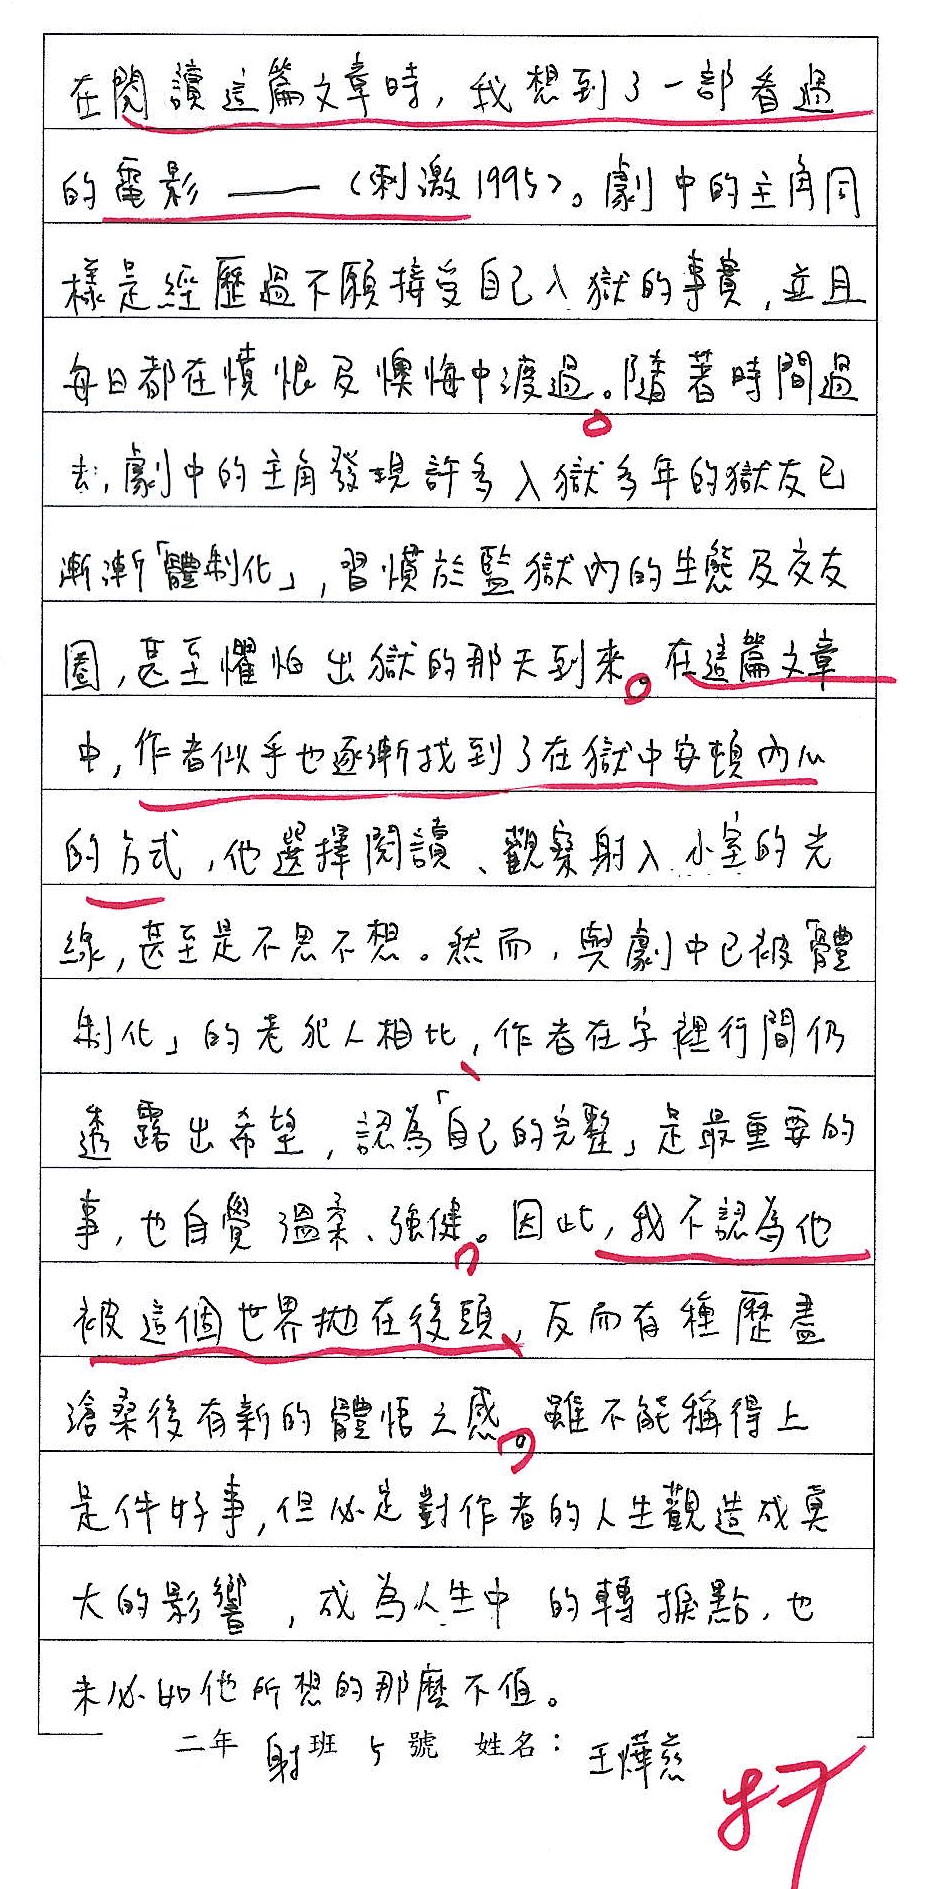 在閱讀這篇文章時，我想到了一部看過
的電影——〈刺激1995〉。劇中的主角同
樣是經歷過不願接受自己入獄的事實，並且
每日都在憤恨及懊悔中渡過。隨著時間過
去，劇中的主角發現許多入獄多年的獄友已
漸漸「體制化」，習慣於監獄內的生態及交友
圈，甚至懼怕出獄的那天到來。在這篇文章
中，作者似乎也逐漸找到了在獄中安頓內心
的方式，他選擇閱讀、觀察射入小室的光
線，甚至是不思不想。然而，與劇中已被「體
制化」的老犯人相比，作者在字裡行間仍
透露出希望，認為「自己的完整」是最重要的
事，也自覺溫柔、強健。因此，我不認為他
被這個世界拋在後頭，反而有種歷盡
滄桑後有新的體悟之感。雖不能稱得上
是件好事，但必定對作者的人生觀造成莫
大的影響，成為人生中的轉捩點，也
未必如他所想的那麼不值。
二年 射班 5號 姓名：王燁慈
87